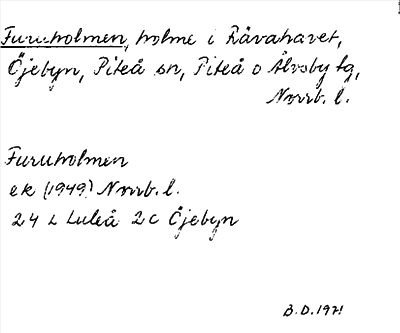 Furuholmen, holme i Råvahavet,
Öjebyn, Piteå sn, Piteå o Älvsby tg,
Norrb. l.
Furuholmen
ek (1949) Norrb. l.
24 L Luleå 2c Öjebyn
B.D. 1971